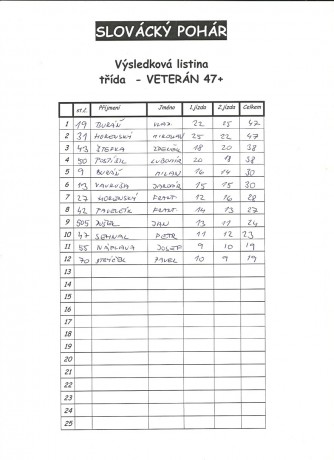 SLOVÁCKÝ POHÁR
Výsledková listina
třída - VETERÁN 47+
st.č. Příjmení Jméno 1.jízda 2.jízda Celkem
1 19 BURÁŇ 22 25 47
2 31 HORENSKÝ MIROSLAV 25 22 47
3 43 ŠTEFKA 18 20 38
4 50 POSPÍŠIL LUBOMÍR 20 18 38
5 9 BURÁŇ MILAN 16 14 30
6 13 VAVRUŠA JAROMÍR 15 15 30
7 27 HORENSKÝ FRANT 12 16 28
8 42 FRANT 14 13 27
9 505 JAN 13 11 24
10 47 SEHNAL PETR 11 12 23
11 55 NÁPLAVA JOSEF 9 10 19
12 70 PAVEL 10 9 19
13
14
15
16
17
18
19
20
21
22
23
24
25